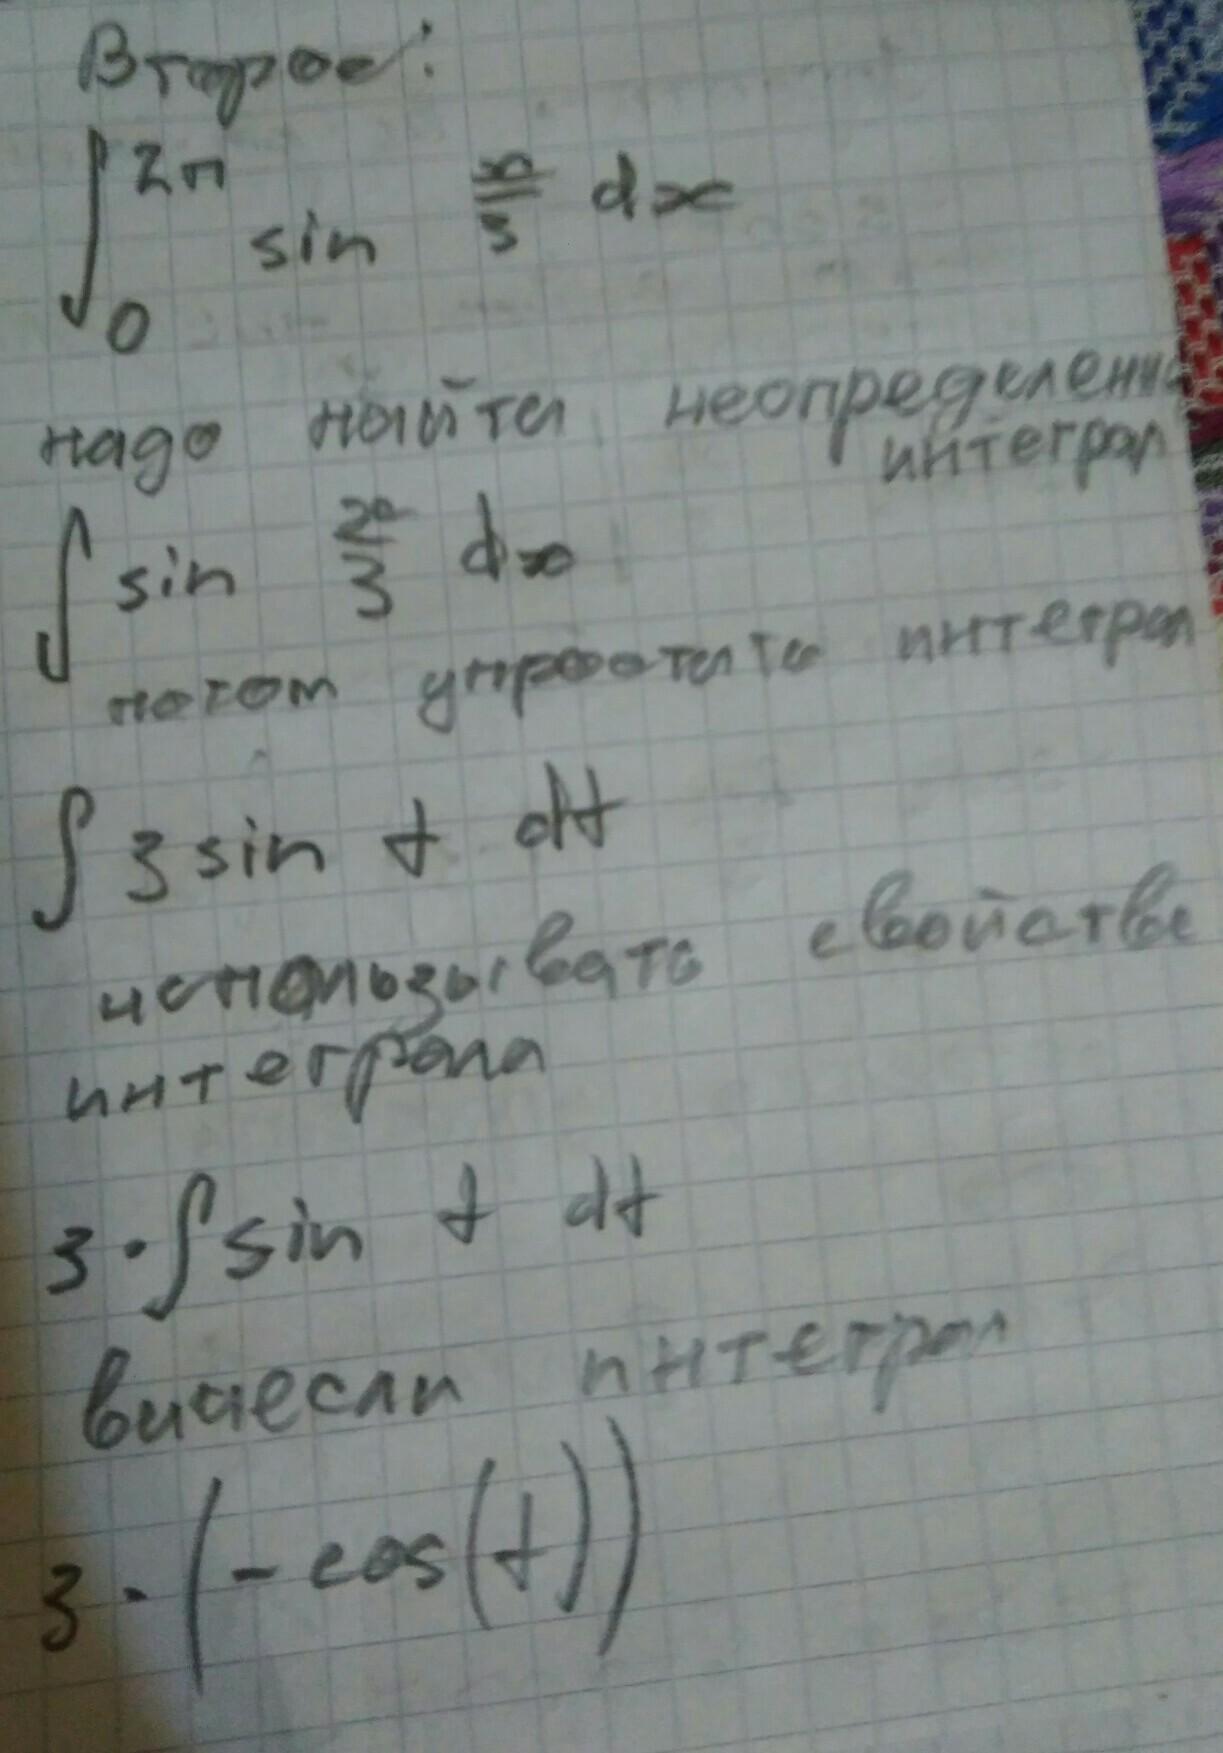 Второе:
∫₀²ᴨ sin x/3 dx
надо найти неопределенн
интеграл
∫ sin x/3 dx
потом упростить интеграл
∫ 3 sin t dt
использывать свойстве
интеграла
3 · ∫ sin t dt
вичесли интеграл
3 · (- cos(t))